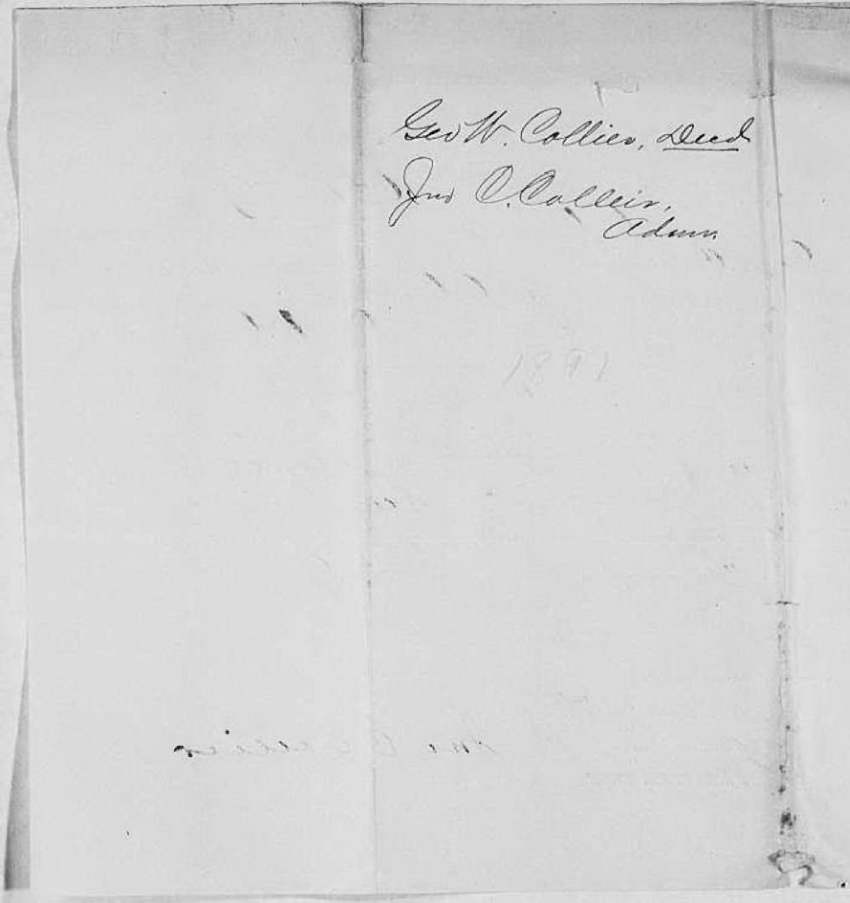 Geo W. Collier, Decd
Jno C. Collier,
Admr.
1891